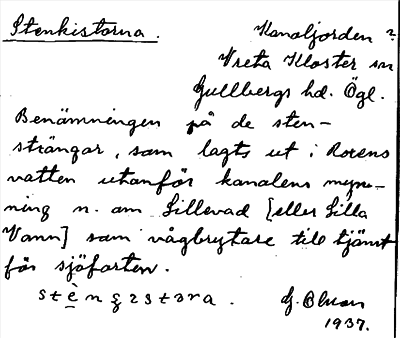 Stenkistorna. Kanaljorden?
Vreta Kloster sn
Gullbergs hd. Ögl.
Benämningen på de sten-
strängar, som lagts ut i Roxens
vatten utanför kanalens myn-
ning n. om Lillevad [eller Lilla
Vann] som vågbrytare till tjänst
för sjöfarten.
G.
1937.